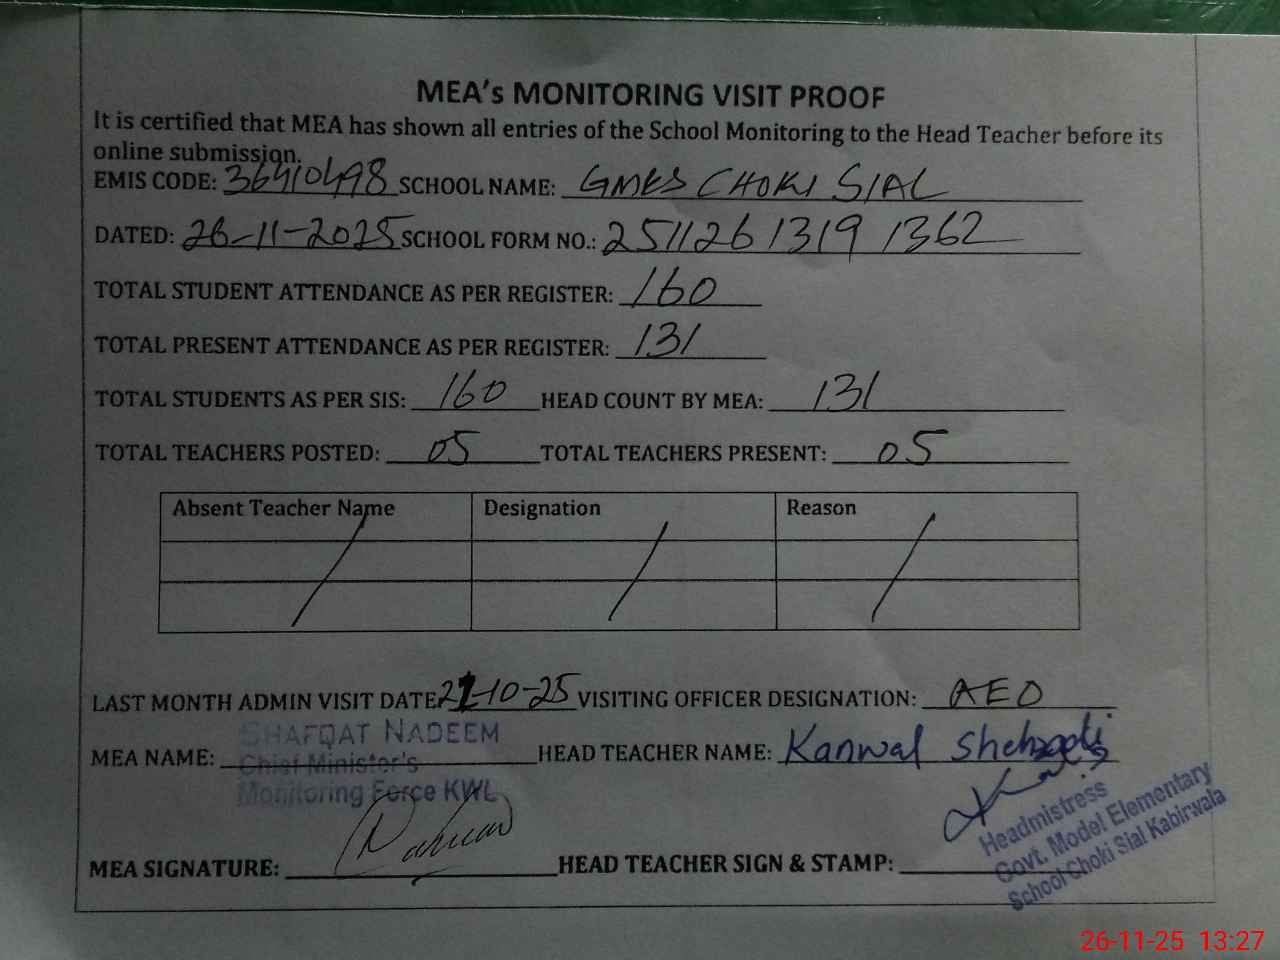 MEA's MONITORING VISIT PROOF
It is certified that MEA has shown all entries of the School Monitoring to the Head Teacher before its
online submission.
EMIS CODE: 36410498 SCHOOL NAME: GMES CHOKI SIAL
DATED: 26-11-2025 SCHOOL FORM NO.: 25112613191362
TOTAL STUDENT ATTENDANCE AS PER REGISTER: 160
TOTAL PRESENT ATTENDANCE AS PER REGISTER: 131
TOTAL STUDENTS AS PER SIS: 160 HEAD COUNT BY MEA: 131
TOTAL TEACHERS POSTED: 05 TOTAL TEACHERS PRESENT: 05
Absent Teacher Name Designation Reason
LAST MONTH ADMIN VISIT DATE -10-25 VISITING OFFICER DESIGNATION: AEO
MEA NAME: SHAFQAT NADEEM HEAD TEACHER NAME: Kanwal
Chief Minister's
Monitoring Force KWL
MEA SIGNATURE: HEAD TEACHER SIGN & STAMP:
Headmistress
Govt. Model Elementary
School Choki Sial Kabirwala
26-11-25 13:27